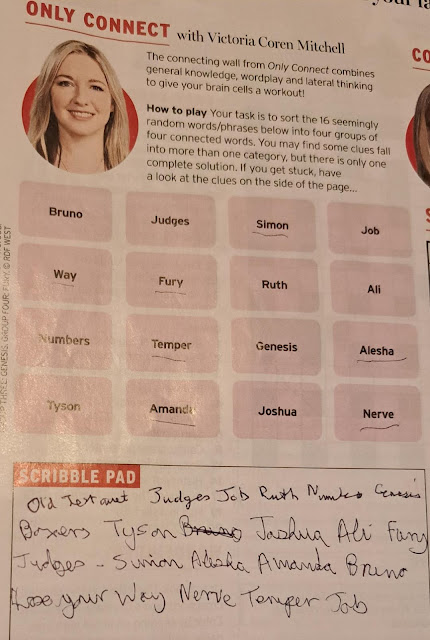 ONLY CONNECT with Victoria Coren Mitchell
The connecting wall from Only Connect combines
general knowledge, wordplay and lateral thinking
to give your brain cells a workout!
How to play Your task is to sort the 16 seemingly
random words/phrases below into four groups of
four connected words. You may find some clues fall
into more than one category, but there is only one
complete solution. If you get stuck, have
a look at the clues on the side of the page...
Bruno Judges Simon Job
Way Fury Ruth Ali
Numbers Temper Genesis Alesha
Tyson Amanda Joshua Nerve
THREE: GENESIS. GROUP FOUR: FURY. © RDF WEST
SCRIBBLE PAD
Old Judges Job Ruth Genesis
Boxers Tyson Bruno Joshua Ali Fury
Judges - Simon Alesha Amanda Bruno
Lose your Way Nerve Temper Job